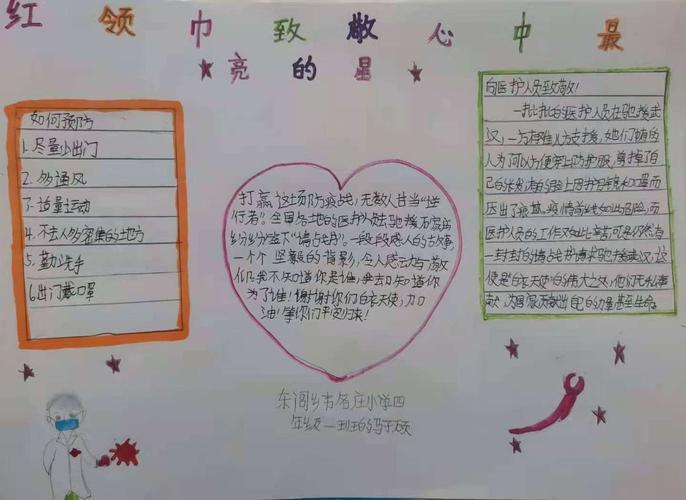 红领巾致敬心中最
亮的星
如何预防
1.尽量少出门
2.多通风
3.适量运动
4.不去人多密集的地方
5.勤洗手
6.出门戴口罩
打赢这场防疫战,无数人甘当“逆
行者”。全国各地的医护
纷纷签下“请战书”。一段段感人的故事,
一个个坚毅的背影,令人感动与敬
仰。我不知道你是谁,我却知道你
为了谁!谢谢你们白衣天使,加
油!等你们平安归来!
向医护人员致敬!
一批批的医护人员在驰援武
汉,一方有难八方支援,他们有的
人为了可以方便穿上防护服,剪掉了自
己的长发,有的脸上因护目镜和口罩而
疫情前线如此危险,而
医护人员的工作又如此辛苦,可是仍然有
一封封的请战书请求驰援武汉,这
便是白衣天使的伟大之处,他们无私奉
献,为国家贡献出自己的力量甚至生命
东阁乡
小学四
年级一班的马